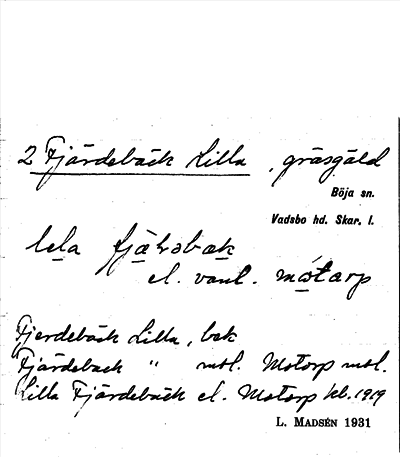 2 Fjärdebäck Lilla, gräsgäld
Böja sn.
Vadsbo hd. Skar. l.
lela fjärsbak
el. vanl. mótarp
Fjerdebäck Lilla, bek
Fjärdeback " mol. Motorp mol.
Lilla Fjärdebäck el. Motorp kb. 1919
L. Madsén 1931